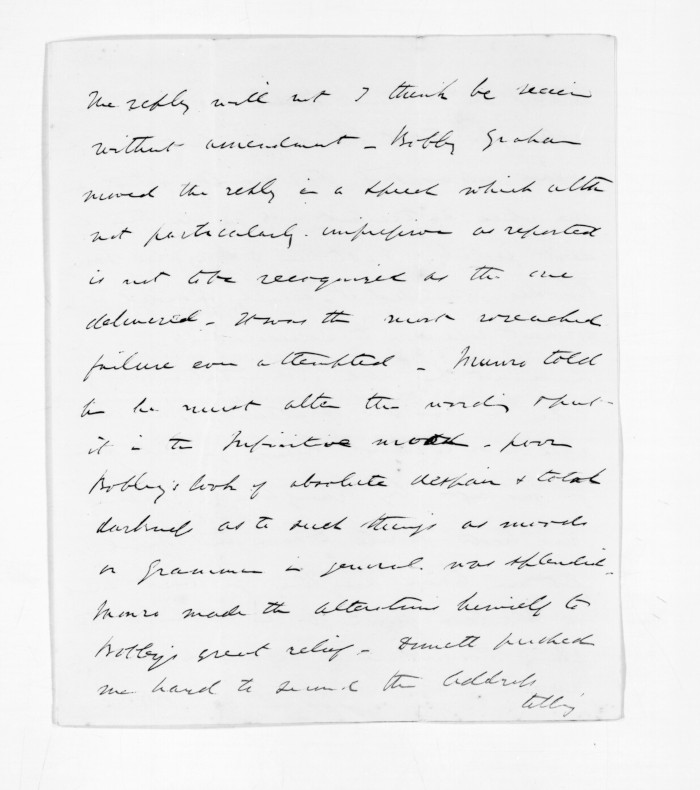 The reply will not I think be
without amendment - Bobby Graham
moved the reply in a speech which altho
not particularly impressive as reported
is not to be recognized as the one
delivered - It was the most wretched
failure ever attempted - Munro told
he must alter the wording & put
it in the Infinitive mood - poor
Bobby's look of absolute despair & total
darkness as to such things as moods
or Grammar in general was splendid -
Munro made the alterations himself to
Bobby's great relief - pushed
me hard to second the Address
telling